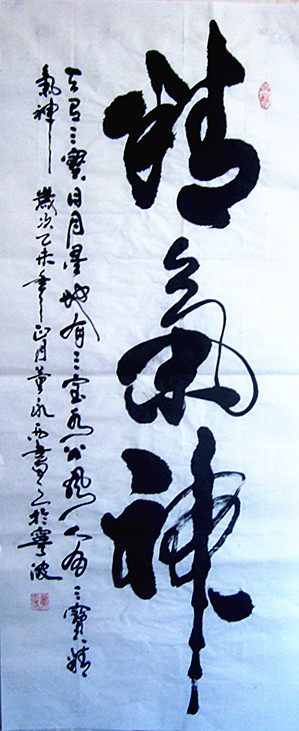 精氣神
天有三寶日月星地有三宝水火風人有三寶精
氣神 歲次乙未年正月黄永西書於寧波